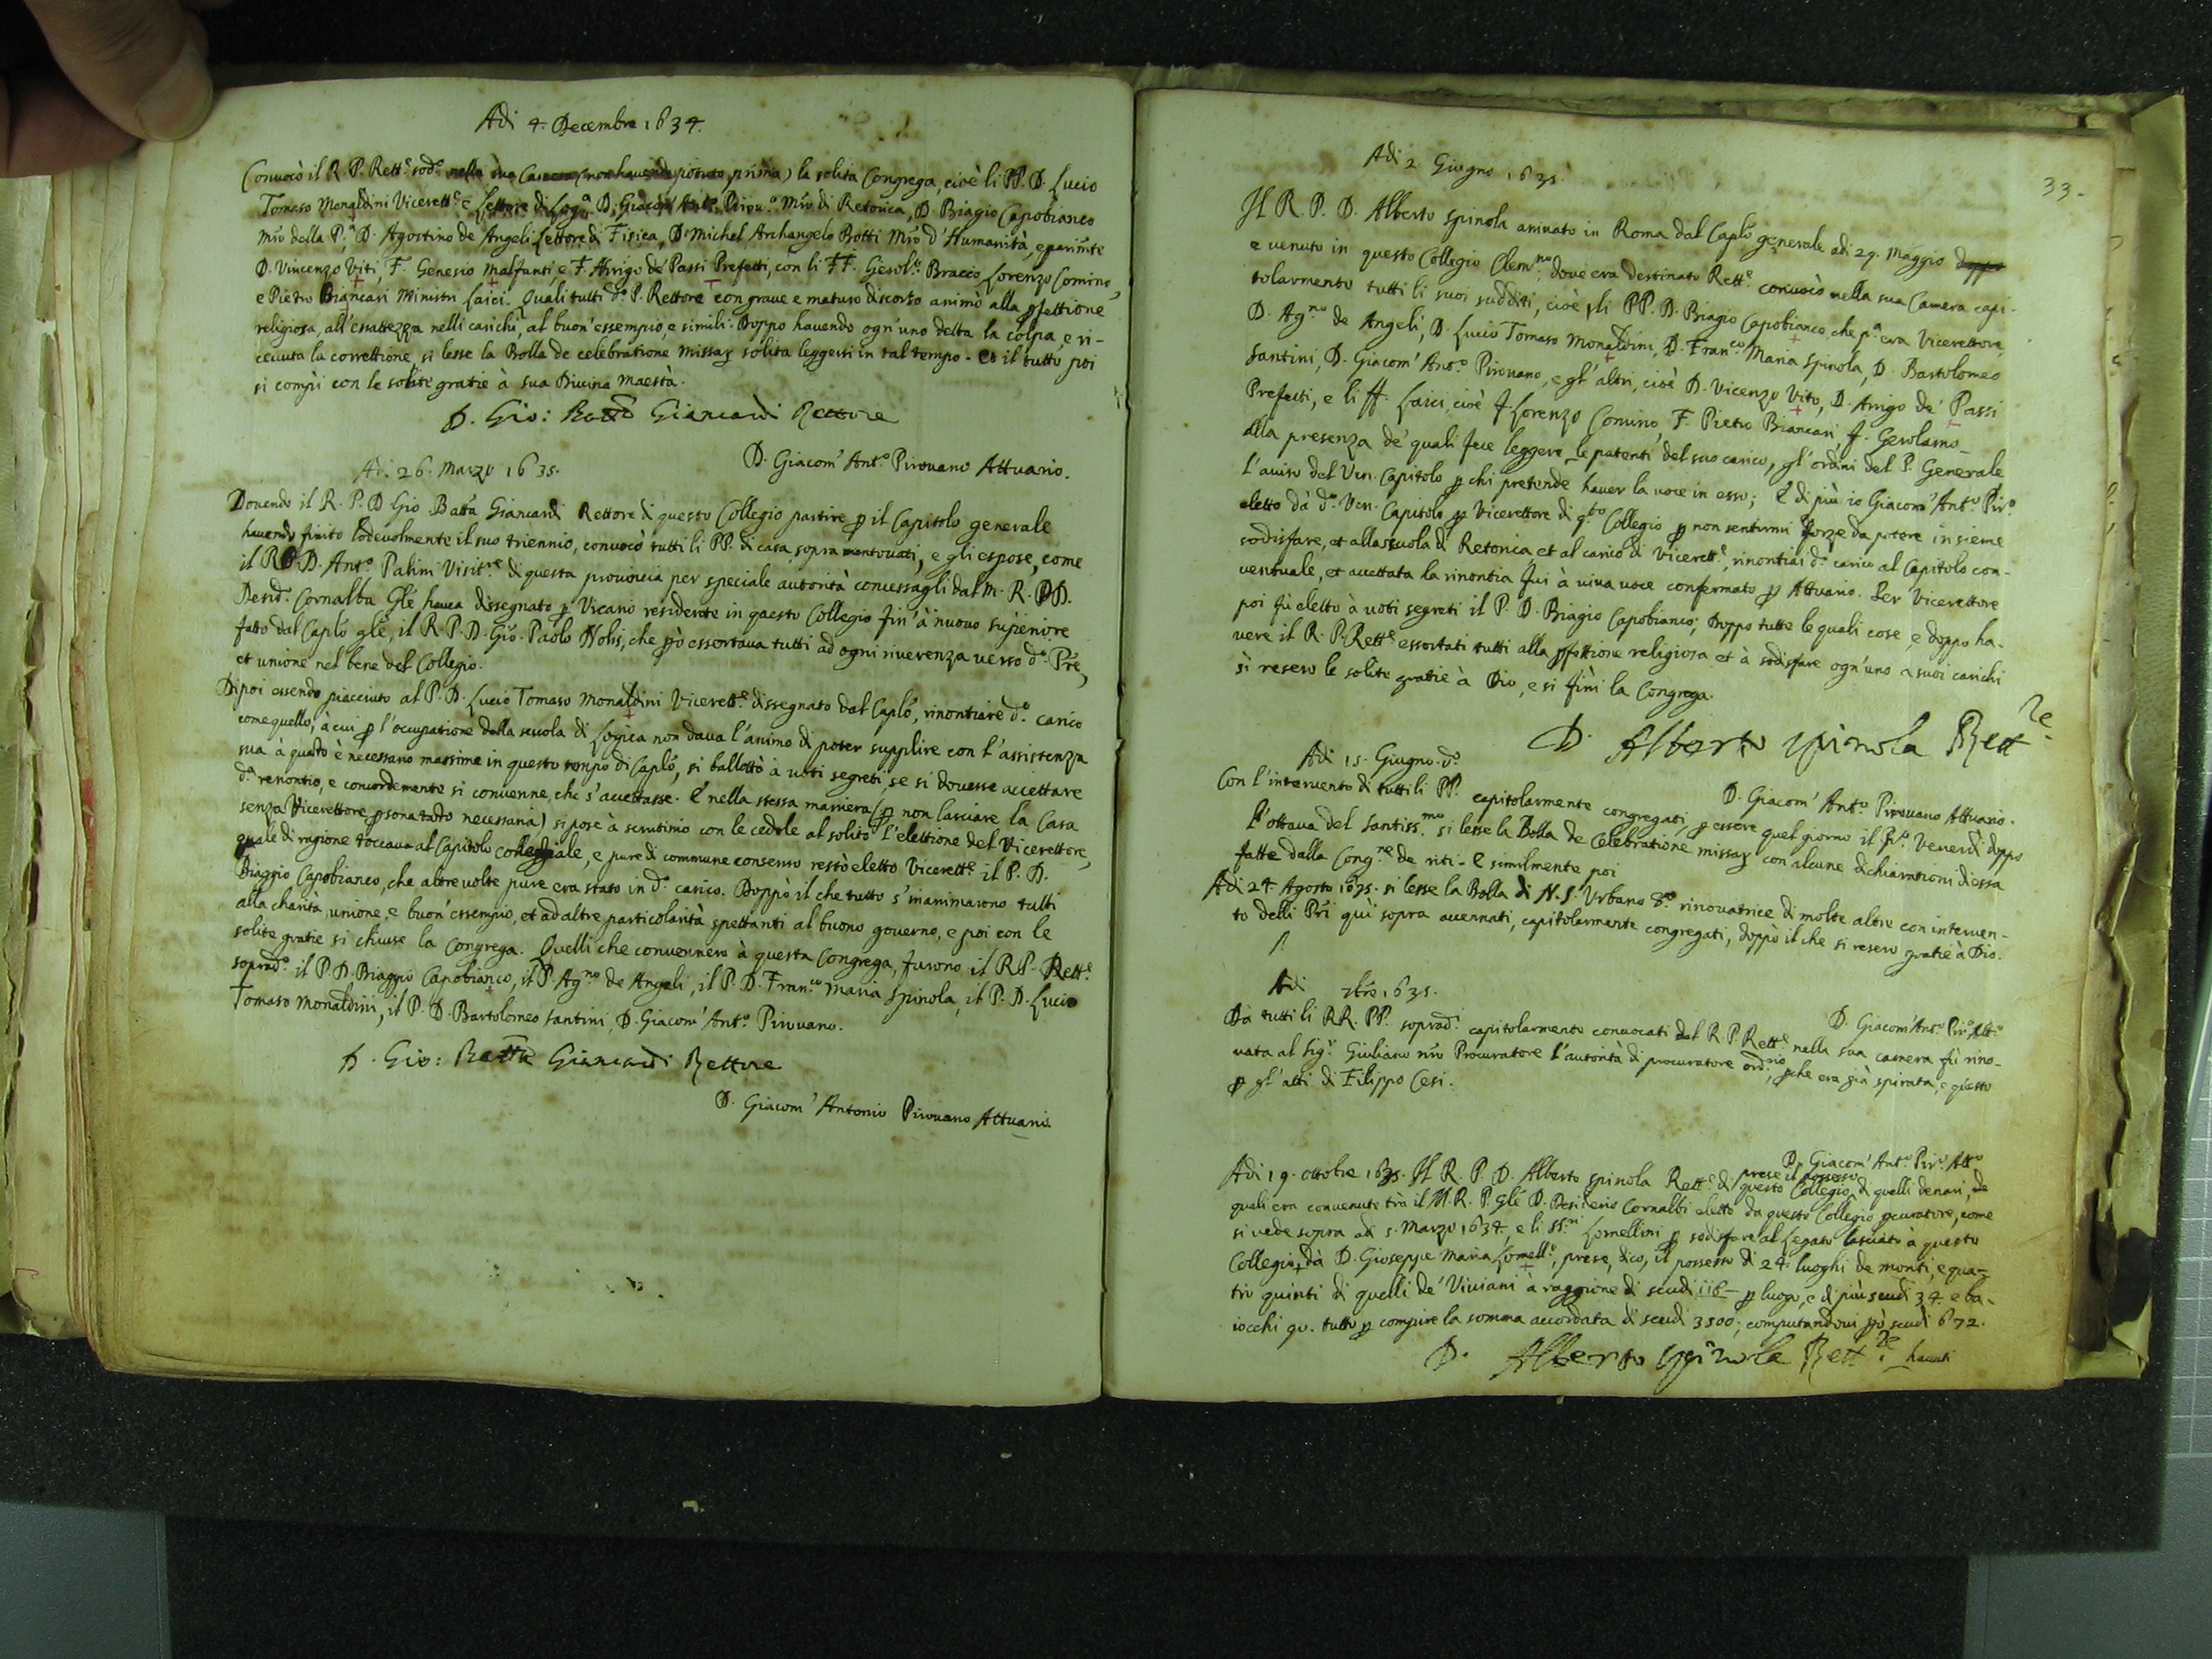 Adi 4. Decembre 1634.
Convocò il R. P. Rett.e sod.o nella sua Camera (non havendo potuto prima) la solita Congrega, cioè li PP. D. Lucio
Tomaso Monaldini Vicerett.e e Lettore di Log.a D. Giacom' Ant.o Pirou.o Mro di Retorica, D. Biagio Capobianco
Mro della P.a D. Agostino de Angeli Lettore di Fisica, D. Michel Archangelo Botti Mro d'Humanità, e parimte
D. Vincenzo Viti, F. Genesio Malfanti, e F. Arrigo de Passi Prefetti, con li FF. Gerol.o Bracco Lorenzo Comino,
e Pietro Biancari Ministri Laici. Quali tutti d.o P. Rettore con grave e maturo discorso animò alla pfettione
religiosa, all'essattezza nelli carichi, al buon'essempio, e simili. Doppo havendo ogn'uno detta la colpa, e ri-
cevuta la correttione, si lesse la Bolla de celebratione Missar solita leggersi in tal tempo. Et il tutto poi
si compì con le solite gratie à sua Divina Maestà.
D. Gio: Batta Giancardi Rettore
D. Giacom' Ant.o Pirovano Attuario.
Adi 26. Marzo 1635.
Dovendo il R. P. D. Gio. Batta Giancardi Rettore di questo Collegio partire p il Capitolo generale
havendo finito lodevolmente il suo triennio, convocò tutti li PP. di casa sopra mentovati, e gli espose, come
il R. P. D. Ant.o Palini Visit.re di questa provincia per speciale autorità concessagli dal M. R. P. D.
Desid.o Cornalba Gle havea dissegnato p Vicario residente in questo Collegio fin'à nuovo superiore
fatto dal Caplo gle, il R. P. D. Gio. Paolo Nolis, che pò essortava tutti ad ogni riverenza verso d.o Pre,
et unione nel bene del Collegio.
Dipoi essendo piacciuto al P. D. Lucio Tomaso Monaldini Vicerett.e dissegnato dal Caplo, rinontiare d.o carico
come quello, à cui p l'occupatione della scuola di Logica non dava l'animo di poter supplire con l'assistenza
sua à quanto è necessario massime in questo tempo di Caplo, si ballottò à voti segreti, se si dovesse accettare
d.a renontio, e concordemente si convenne, che s'accettasse. E nella stessa maniera (p non lasciare la Casa
senza Vicerettore psona tanto necessaria) si pose à scrutinio con le cedole al solito l'elettione del Vicerettore,
quale di ragione toccava al Capitolo collegiale, e pure di commune consenso restò eletto Vicerett.e il P. D.
Biaggio Capobianco, che altre volte pure era stato in d.o carico. Doppò il che tutto s'inanimarono tutti
alla charità, unione, e buon'essempio, et ad altre particolarità spettanti al buono governo, e poi con le
solite gratie si chiuse la Congrega. Quelli che convennero à questa Congrega, furono il R.P. Rett.e
soprad.o il P. D. Biaggio Capobianco, il P. Ag.no de Angeli, il P. D. Fran.co Maria Spinola, il P. D. Lucio
Tomaso Monaldini, il P. D. Bartolomeo Santini, D. Giacom' Ant.o Pirovano.
D. Gio: Batta Giancardi Rettore
D. Giacom' Antonio Pirovano Attuario.
33.
Adi 2 Giugno 1635.
Il R. P. D. Alberto Spinola arrivato in Roma dal Caplo generale adi 29. Maggio
e venuto in questo Collegio Clem.no dove era destinato Rett.e convocò nella sua Camera capi-
tolarmente tutti li suoi sudditi, cioè gli PP. D. Biagio Capobianco che p.a era Vicerettore,
D. Ag.no de Angeli, D. Lucio Tomaso Monaldini, D. Fran.co Maria Spinola, D. Bartolomeo
Santini, D. Giacom' Ant.o Pirovano, e gl'altri, cioè D. Vicenzo Vito, D. Arrigo de' Passi
Prefetti, e li ff. Laici cioè f. Lorenzo Comino, F. Pietro Biancari, f. Gerolamo
alla presenza de' quali fece leggere le patenti del suo carico, gl'ordini del P. Generale
l'aviso del Ven. Capitolo p chi pretende haver la voce in esso; E di più io Giacom' Ant.o Pir.o
eletto dà d.o Ven. Capitolo p Vicerettore di q.to Collegio p non sentirmi forze da potere insieme
sodisfare, et alla scuola di Retorica et al carico di Vicerett.e, rinontiai d.o carico al Capitolo con-
ventuale, et accettata la rinontia fui à viva voce confermato p Attuario. Per Vicerettore
poi fù eletto à voti segreti il P. D. Biagio Capobianco; Doppo tutte le quali cose, e doppo ha-
vere il R. P. Rett.e essortati tutti alla pfettione religiosa, et à sodisfare ogn'uno a suoi carichi
si resero le solite gratie à Dio, e si finì la Congrega.
D. Alberto Spinola Rett.re
D. Giacom' Ant.o Pirovano Attuario.
Adi 15. Giugno d.o
Con l'intervento di tutti li PP. capitolarmente congregati, p essere quel giorno il P.o Venerdì doppo
l'ottava del Santiss.mo si lesse la Bolla de Celebratione missar con alcune dichiarationi di essa
fatte dalla Cong.ne de riti. E similmente poi
Adi 24. Agosto 1635. si lesse la Bolla di N. S. Urbano 8.o rinovatrice di molte altre con interven-
to delli Pri quì sopra accennati, capitolarmente congregati, doppò il che si resero gratie à Dio.
D. Giacom' Ant.o Pir.o Att.o
Adi 7bre 1635.
Dà tutti li RR. PP. soprad.i capitolarmente convocati dal R. P. Rett.e nella sua camera fù rino-
vata al Sig.r Giuliano nro Procuratore l'autorità di procuratore ord.rio, pche era già spirata, e questo
p gl'atti di Filippo Cesi.
D. Giacom' Ant.o Pir.o Att.o
Adi 19. ottobre 1635. Il R. P. D. Alberto Spinola Rett.e di questo Collegio prese il possesso di quelli denari, de
quali era convenuto trà il M. R. P. Gle D. Desiderio Cornalbi eletto da questo Collegio pcuratore, come
si vede sopra adi 5. Marzo 1634, e li SS.ri Lomellini p sodisfare al Legato lasciato à questo
Collegio dà D. Gioseppe Maria Lomell.o, prese, dico, il possesso di 24. luoghi de monti, e qua-
tro quinti di quelli de' Viviani à raggione di scudi 116 p luogo, e di più scudi 34. e ba-
iocchi 90. tutto p compire la somma accordata di scudi 3500, computandovi pò scudi 672.
D. Alberto Spinola Rett.re havuti